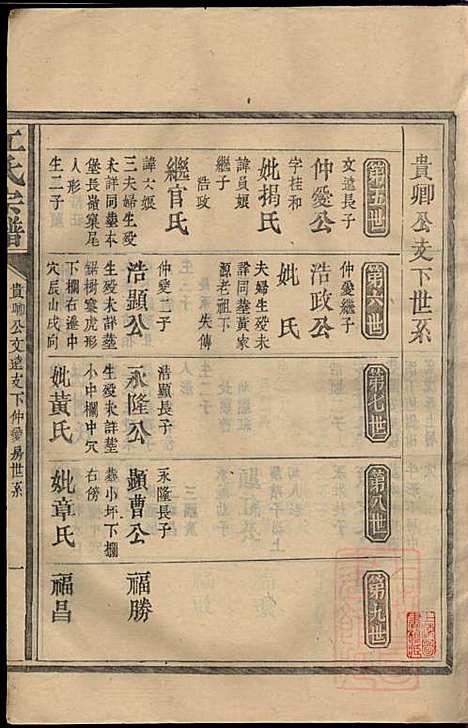 貴卿公支下世系
第五世
文遠長子
仲愛公
字桂和
妣揭氏
諱員娘
繼子
浩政
繼官氏
諱六娘
三夫婦生歿
未詳同塟本
堡長嶺窠尾
人形
生二子
第六世
仲愛繼子
浩政公
妣 氏
夫婦生歿未
詳同塟黃家
源老祖下
失傳
仲愛二子
浩顯公
生歿未詳塟
鋸樹寮虎形
下欄右邊中
穴辰山戌向
第七世
浩顯長子
永隆公
生歿未詳塟
小中欄中穴
妣黃氏
第八世
永隆長子
顯曹公
塟小坪下欄
右傍
妣章氏
第九世
福勝
福昌
江氏宗譜
貴卿公文遠支下仲愛房世系
一